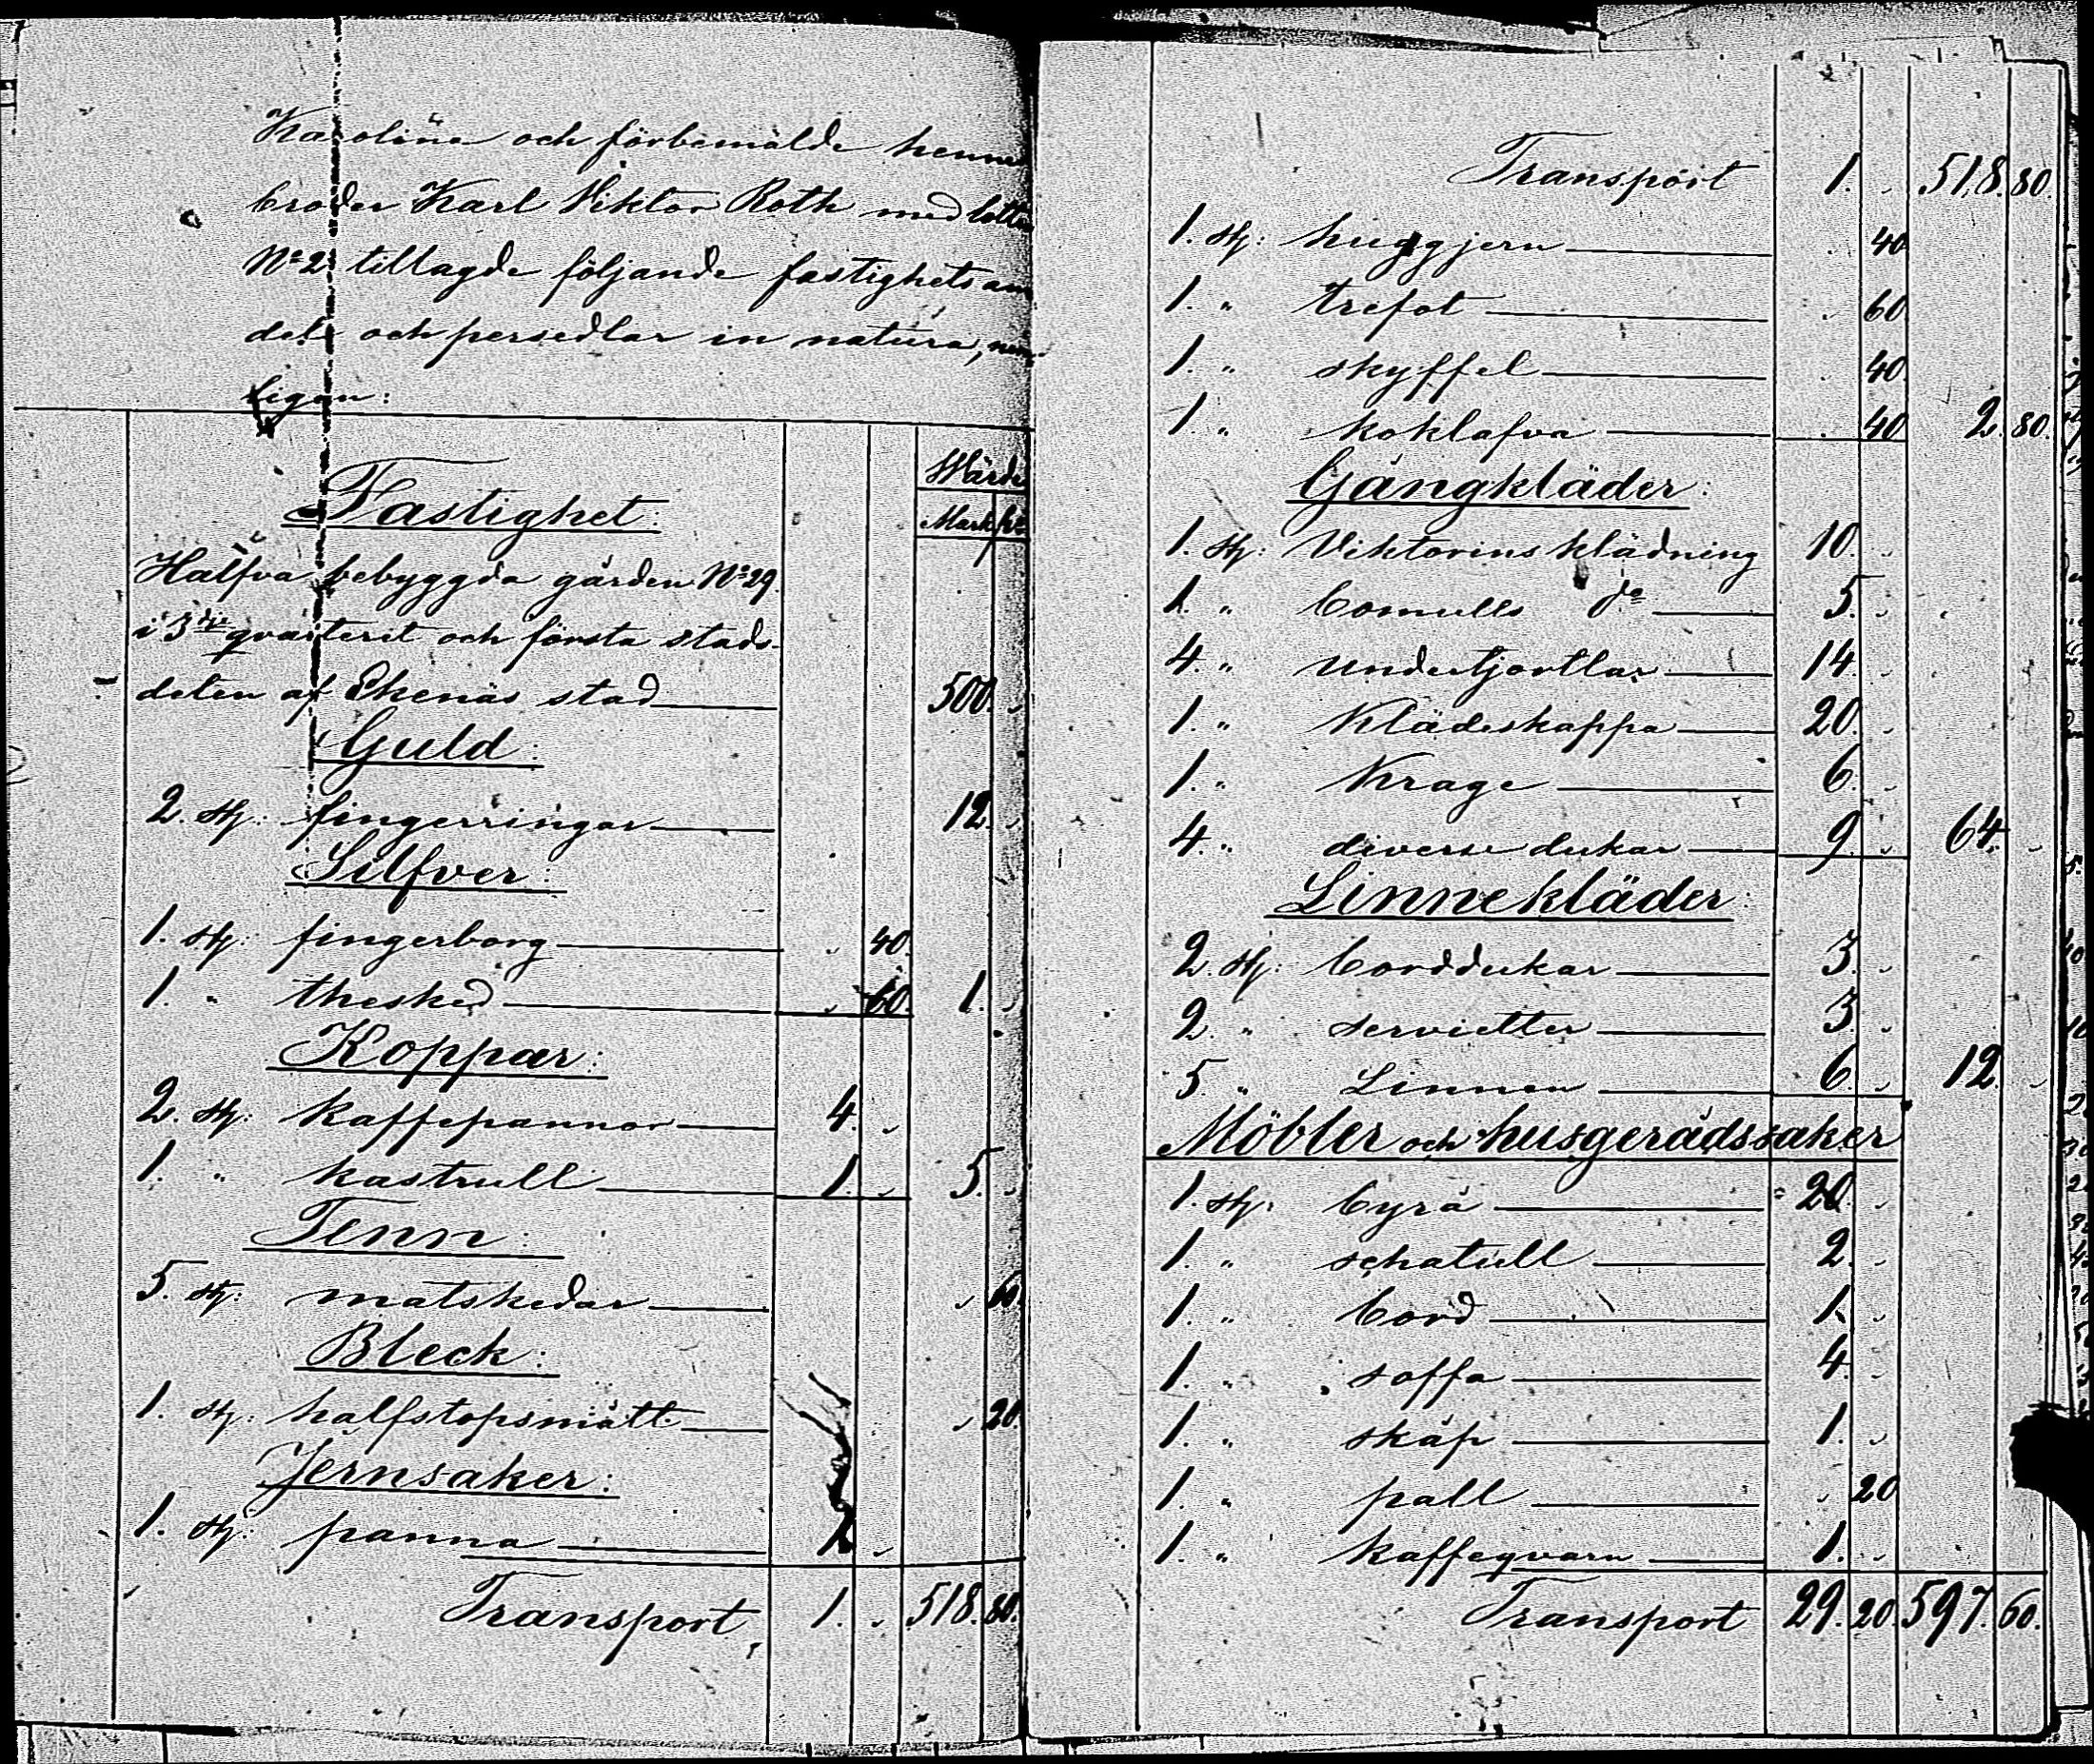 Karolina och förbemälde hennes
broder Karl Viktor Roth med lotten
No 2 tillagde följande fastighets an-
dels och persedlar in natura, nem-
ligen:
Wärde
Mark pi
Fastighet:
Halfva bebyggda gården No 29
i 3dje qvarteret och första stads-
delen af Ekenäs stad 500. "
Guld:
2. st: fingerringar 12. "
Silfver:
1. st: fingerborg " 40.
1. " thesked " 60. 1. "
Koppar:
2. st: kaffepannor 4. "
1. " kastrull 1. " 5. "
Tenn:
5. st: matskedar " 60
Bleck:
1. st: halfstopsmått " 20.
Jernsaker:
1. st: panna 1. "
Transport 1. " 518. 80.
Transport 1. " 518. 80.
1. st: huggjern " 40
1. " trefot " 60
1. " skyffel " 40.
1. " koklafva " 40 2. 80.
Gångkläder:
1. st: Viktorins klädning 10. "
1. " Bomulls do 5. "
4. " underkjortlar 14. "
1. " Klädeskappa 20. "
1. " Krage 6. "
4. " diverse dukar 9. " 64. "
Linnekläder:
2. st: borddukar 3. "
2. " servietter 3. "
5. " Linnen 6. " 12. "
Möbler och husgerådssaker
1. st: byrå 20. "
1. " schatull 2. "
1. " bord 1. "
1. " soffa 4. "
1. " skåp 1. "
1. " pall " 20
1. " kaffeqvarn 1. "
Transport 29. 20. 597. 60.